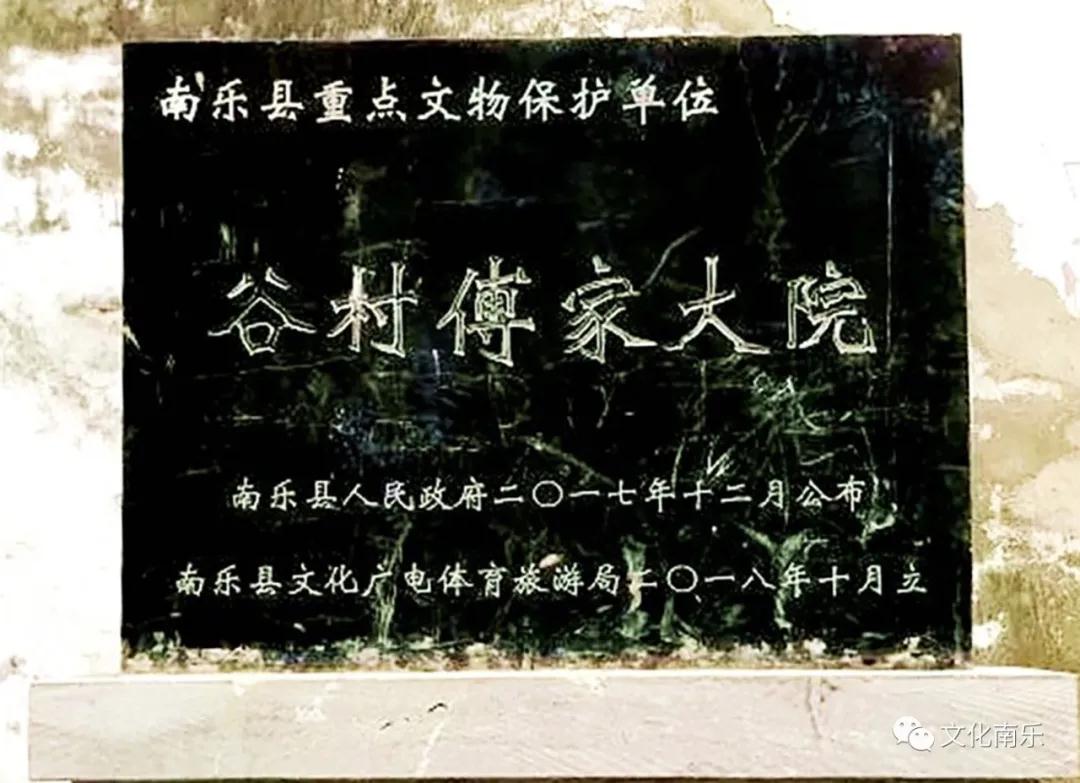 南乐县重点文物保护单位
谷村傅家大院
南乐县人民政府二〇一七年十二月公布
南乐县文化广电体育旅游局二〇一八年十月立
文化南乐